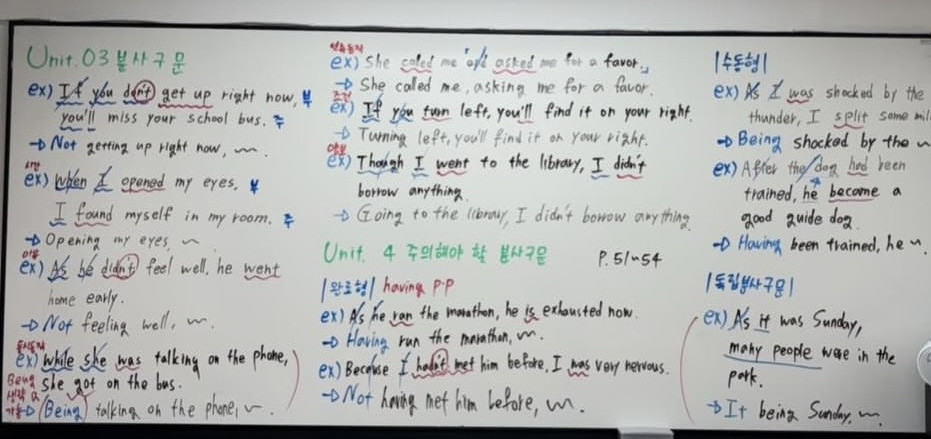 Unit.03 분사구문
ex) If you don't get up right now, 부
you'll miss your school bus. 주
→ Not getting up right now, ~.
시간
ex) When I opened my eyes, 부
I found myself in my room. 주
→ Opening my eyes, ~
이유
ex) As he didn't feel well, he went
home early.
→ Not feeling well, ~.
동시동작
ex) while she was talking on the phone,
she got on the bus.
Being
생략
가능
→ (Being) talking on the phone, ~.
연속동작
ex) She called me and asked me for a favor.
→ She called me, asking me for a favor.
조건
ex) If you turn left, you'll find it on your right.
→ Turning left, you'll find it on your right.
양보
ex) Though I went to the library, I didn't
borrow anything.
→ Going to the library, I didn't borrow anything
Unit. 4 주의해야 할 분사구문 P.51~54
|완료형| having P.P
ex) As he ran the marathon, he is exhausted now.
→ Having run the marathon, ~.
ex) Because I hadn't met him before, I was very nervous.
→ Not having met him before, ~.
|수동형|
ex) As I was shocked by the
thunder, I split some
→ Being shocked by the ~
ex) After the dog had been
trained, he became a
good guide dog.
→ Having been trained, he ~.
|독립분사구문|
ex) As it was Sunday,
many people were in the
park.
→ It being Sunday, ~